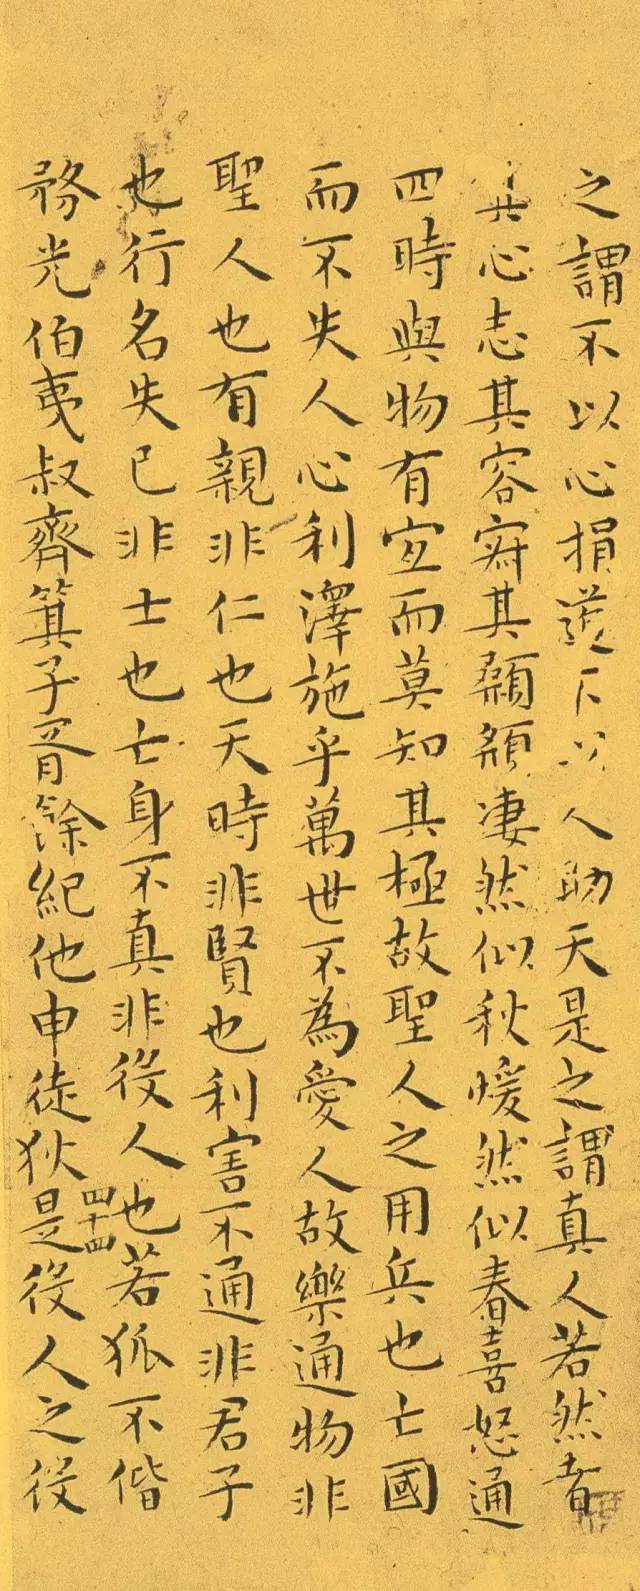 之謂不以心損道不以人助天是之謂真人若然者
其心志其容寂其顙頯凄然似秋煖然似春喜怒通
四時與物有宜而莫知其極故聖人之用兵也亡國
而不失人心利澤施乎萬世不為愛人故樂通物非
聖人也有親非仁也天時非賢也利害不通非君子
也行名失己非士也亡身不真非役人也若狐不偕
務光伯夷叔齊箕子胥餘紀他申徒狄是役人之役
四十四